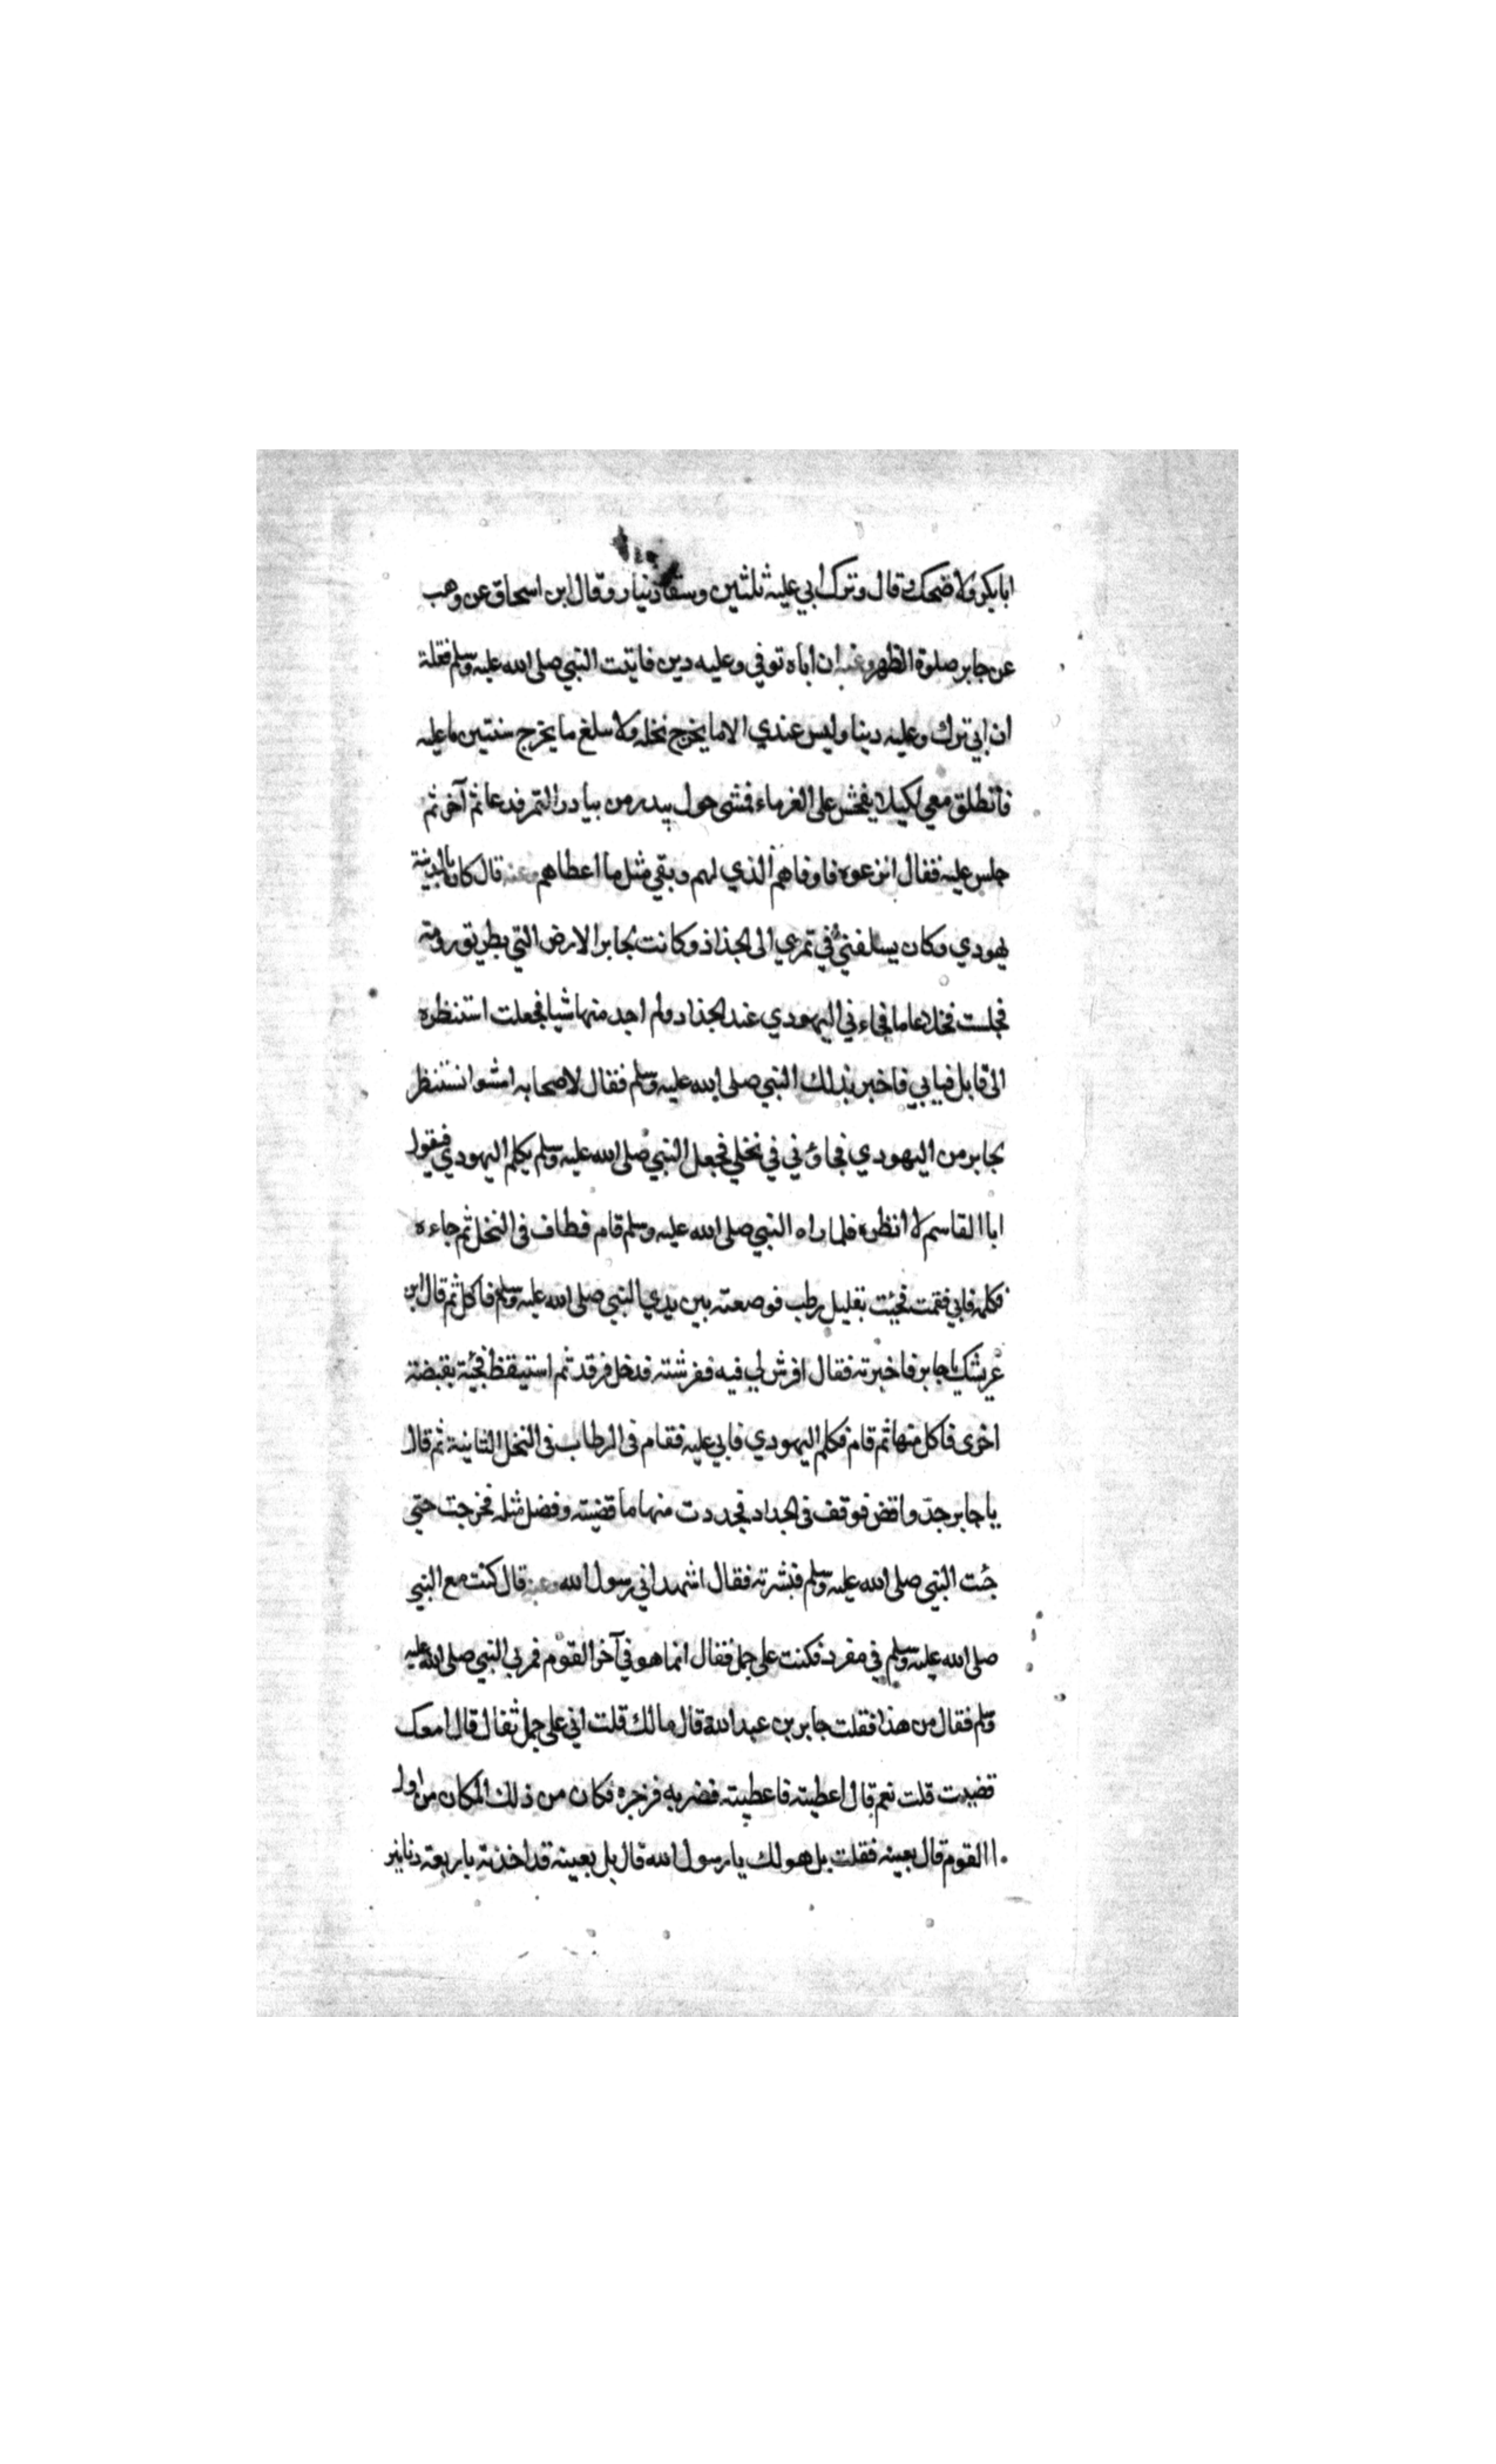 ابابكر ولا ضحك وقال وترك ابي عليه ثلثين وسقا دينا وقال ابن اسحاق عن وهب
عن جابر صلوة الظهر وعنه ان اباه توفي وعليه دين فاتيت النبي صلى الله عليه وسلم فقلت
ان ابي ترك وعليه دينا وليس عندي الا ما يخرج نخله ولا سلغ ما يخرج سنتين ما عليه
فانطلق معي لكيلا يفحش على الغرماء فمشى حول بيدر من بيادر التمر فدعا ثم آخر ثم
جلس عليه فقال انزعوه فاوفاهم الذي لهم وبقي مثل ما اعطاهم وعنه قال كان بالمدينة
يهودي وكان يسلفني في تمري الى الجذاذ وكانت لجابر الارض التي بطريق رومة
فجلست فخلا عاما فجاءني اليهودي عند الجذاد ولم اجد منها شيا فجعلت استنظره
الى قابل فيابي فاخبر بذلك النبي صلى الله عليه وسلم فقال لاصحابه امشوا نستنظر
لجابر من اليهودي فجاؤني في نخلي فجعل النبي صلى الله عليه وسلم يكلم اليهودي فيقول
ابا القاسم لا انظره فلما راه النبي صلى الله عليه وسلم قام فطاف في النخل ثم جاءه
فكلمه فابي فقمت فجئت بقليل رطب فوضعته بين يدي النبي صلى الله عليه وسلم فاكل ثم قال اين
عريشك يا جابر فاخبرته فقال افرش لي فيه ففرشته فدخل فرقد ثم استيقظ فجئة بقبضة
اخرى فاكل منها ثم قام فكلم اليهودي فابي عليه فقام في الرطاب في النخل الثانية ثم قال
يا جابر جدّ واقض فوقف في الجداد فجددت منها ما قضيته وفضل مثله فخرجت حتى
جئت النبي صلى الله عليه وسلم فبشرته فقال اشهد اني رسول الله وعنه قال كنت مع النبي
صلى الله عليه وسلم في مفرد فكنت على جمل فقال انما هو في آخر القوم فمر بي النبي صلى الله عليه
وسلم فقال من هذا فقلت جابر بن عبد الله قال مالك قلت اني على جمل ثفال قال امعك
قضيت قلت نعم قال اعطيته فاعطيته فضربه فزجره فكان من ذلك المكان من اول
القوم قال بعينه فقلت بل هو لك يا رسول الله قال بل بعينه قد اخذته باربعة دنانير